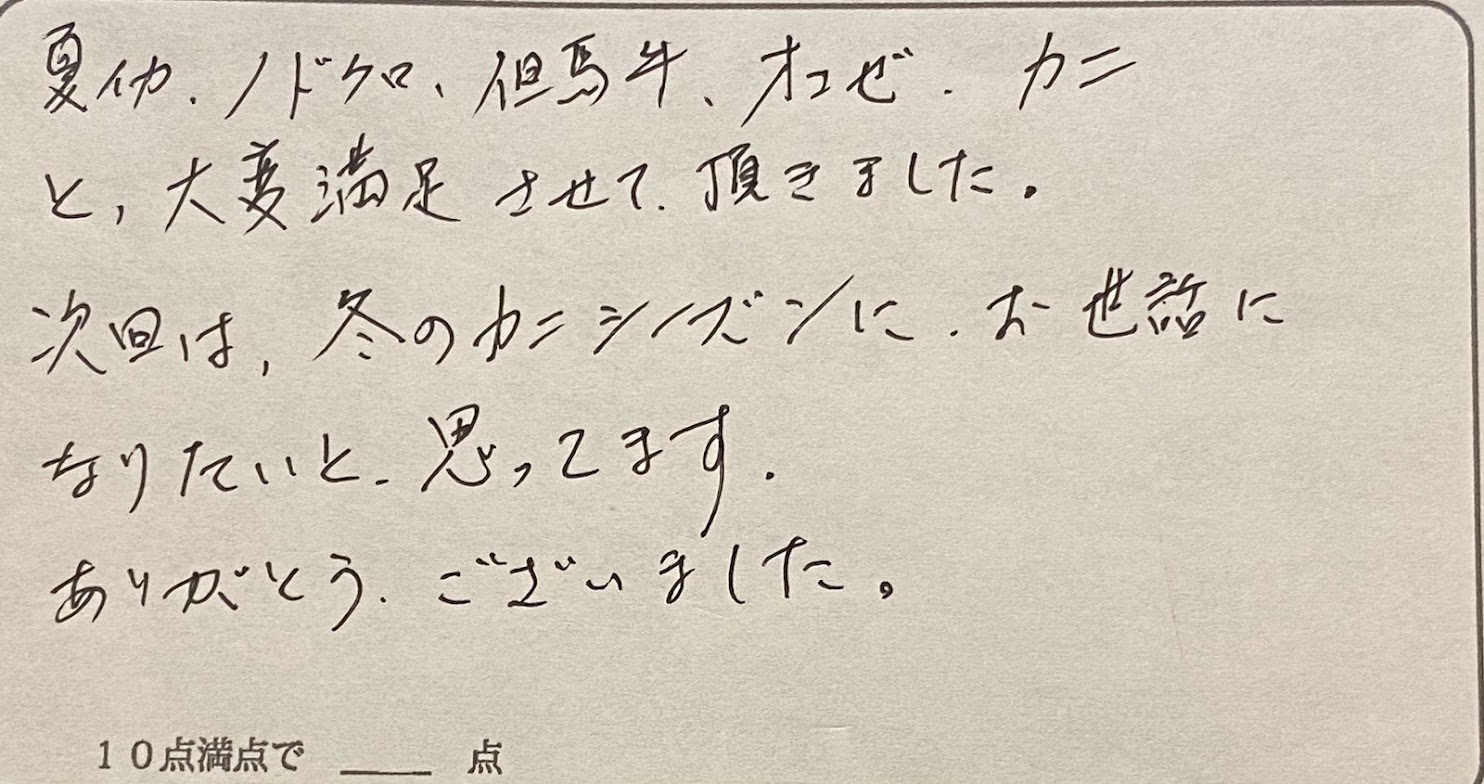 夏イカ、ノドクロ、但馬牛、オコゼ、カニ
と、大変満足させて、頂きました。
次回は、冬のカニシーズンに、お世話に
なりたいと、思ってます。
ありがとう、ございました。
10点満点で ____ 点